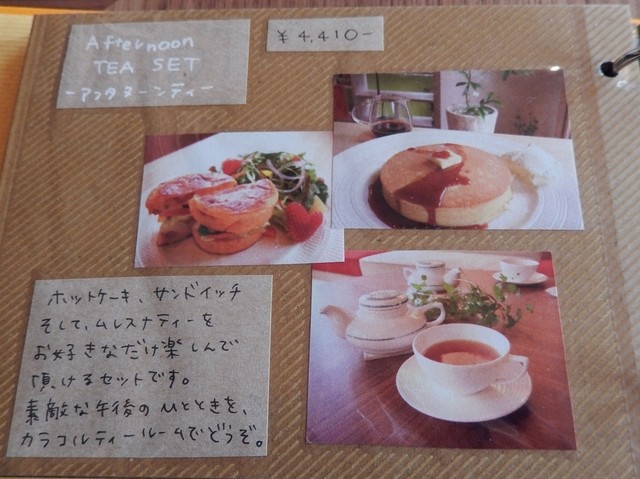 Afternoon
TEA SET
-アフタヌーンティー-
¥4,410-
ホットケーキ、サンドイッチ
そして、ムレスナティーを
お好きなだけ楽しんで
頂けるセットです。
素敵な午後のひとときを、
カラコルティールームでどうぞ。